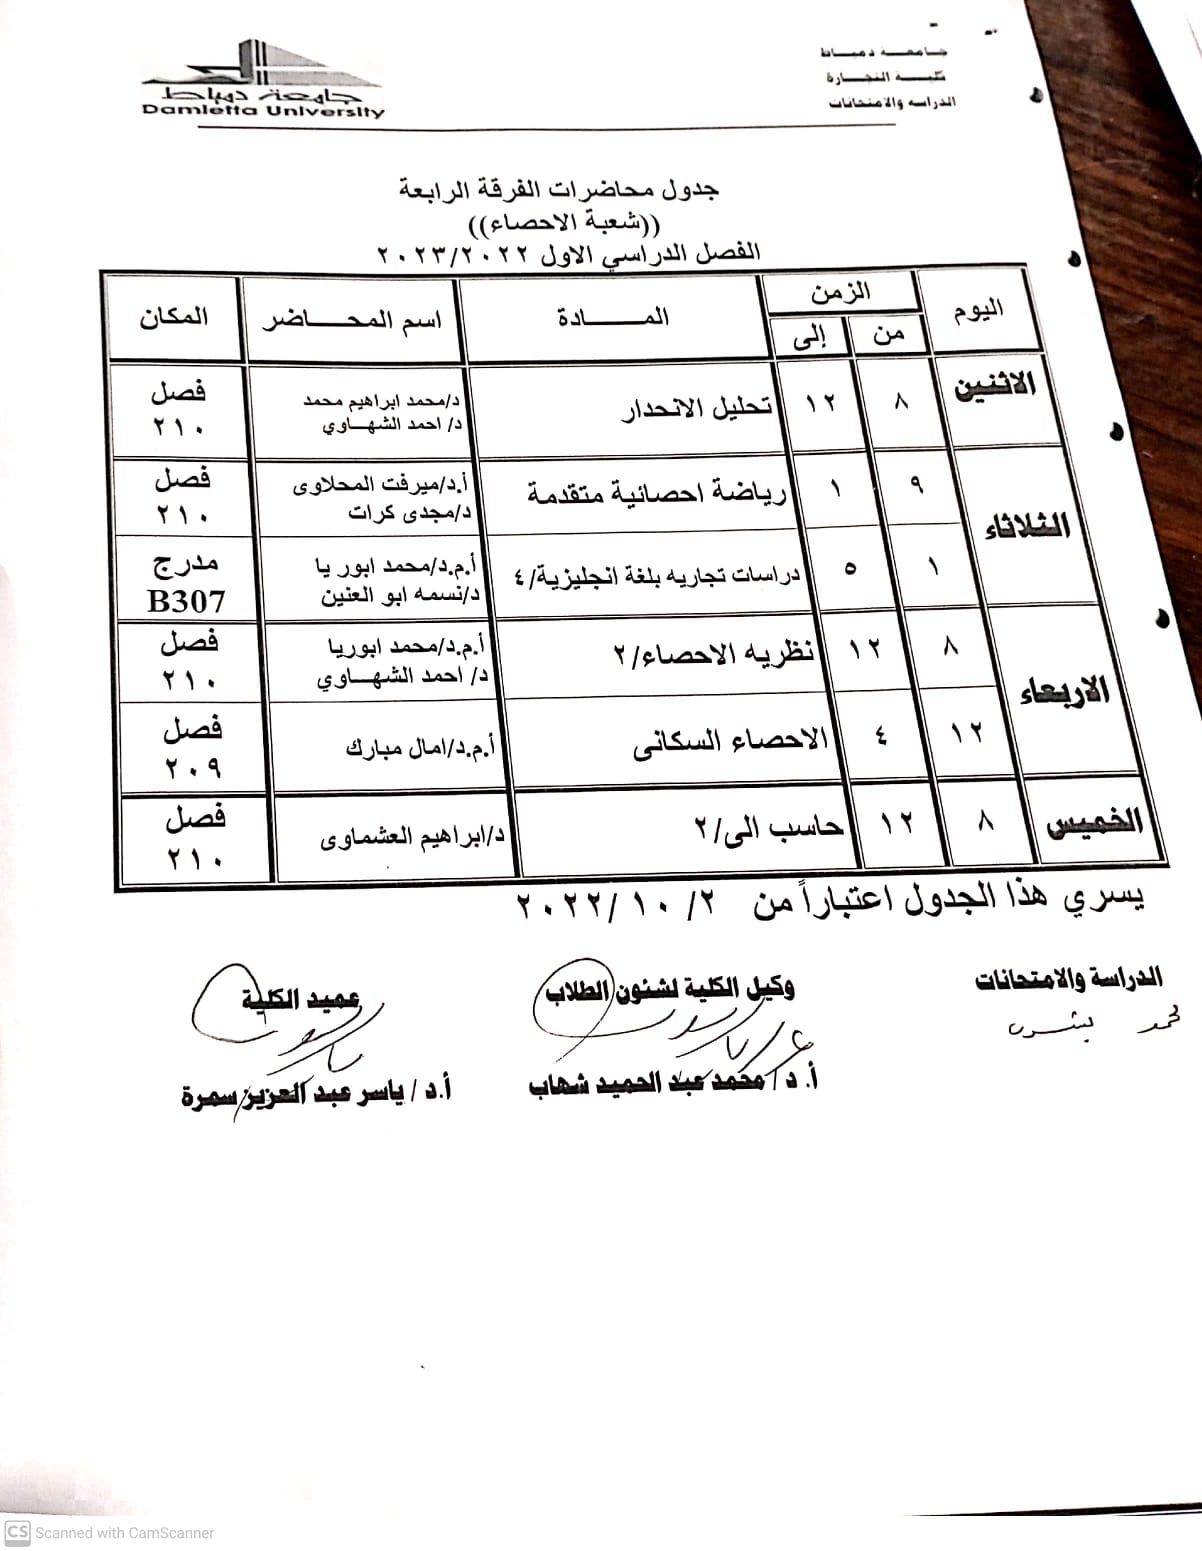 جامعة دمياط
كلية التجارة
الدراسه والامتحانات
جامعة دمياط
Damietta University
جدول محاضرات الفرقة الرابعة
((شعبة الاحصاء))
الفصل الدراسي الاول ٢٠٢٣/٢٠٢٢
اليوم الزمن المــــادة اسم المحـــاضر المكان
من إلى
الاثنين ٨ ١٢ تحليل الانحدار د/محمد ابراهيم محمد فصل
د/ احمد الشهـاوي ٢١٠
الثلاثاء ٩ ١ رياضة احصائية متقدمة أ.د/ميرفت المحلاوى فصل
د/مجدى كرات ٢١٠
١ ٥ دراسات تجاريه بلغة انجليزية/٤ أ.م.د/محمد ابوريا مدرج
د/نسمه ابو العنين B307
الاربعاء ٨ ١٢ نظريه الاحصاء/٢ أ.م.د/محمد ابوريا فصل
د/ احمد الشهـاوي ٢١٠
١٢ ٤ الاحصاء السكانى أ.م.د/امال مبارك فصل
٢٠٩
الخميس ٨ ١٢ حاسب الى/٢ د/ابراهيم العشماوى فصل
٢١٠
يسري هذا الجدول اعتباراً من ٢/ ١٠/ ٢٠٢٢
الدراسة والامتحانات وكيل الكلية لشئون الطلاب عميد الكلية
أ. د/ محمد عبد الحميد شهاب أ.د / ياسر عبد العزيز سمرة
CS Scanned with CamScanner